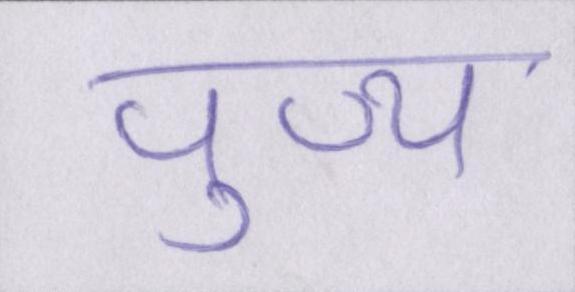 पुज्य